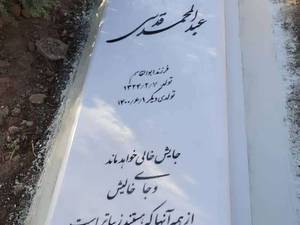 عبدالمحمد قدسی
فرزند ابوالقاسم
تولد ۱۳۲۴/۲/۷
تولدی دیگر ۱۴۰۰/۶/۸
جایش خالی خواهد ماند
و جای خالیش
از همه آنها که هستند زیباتر است